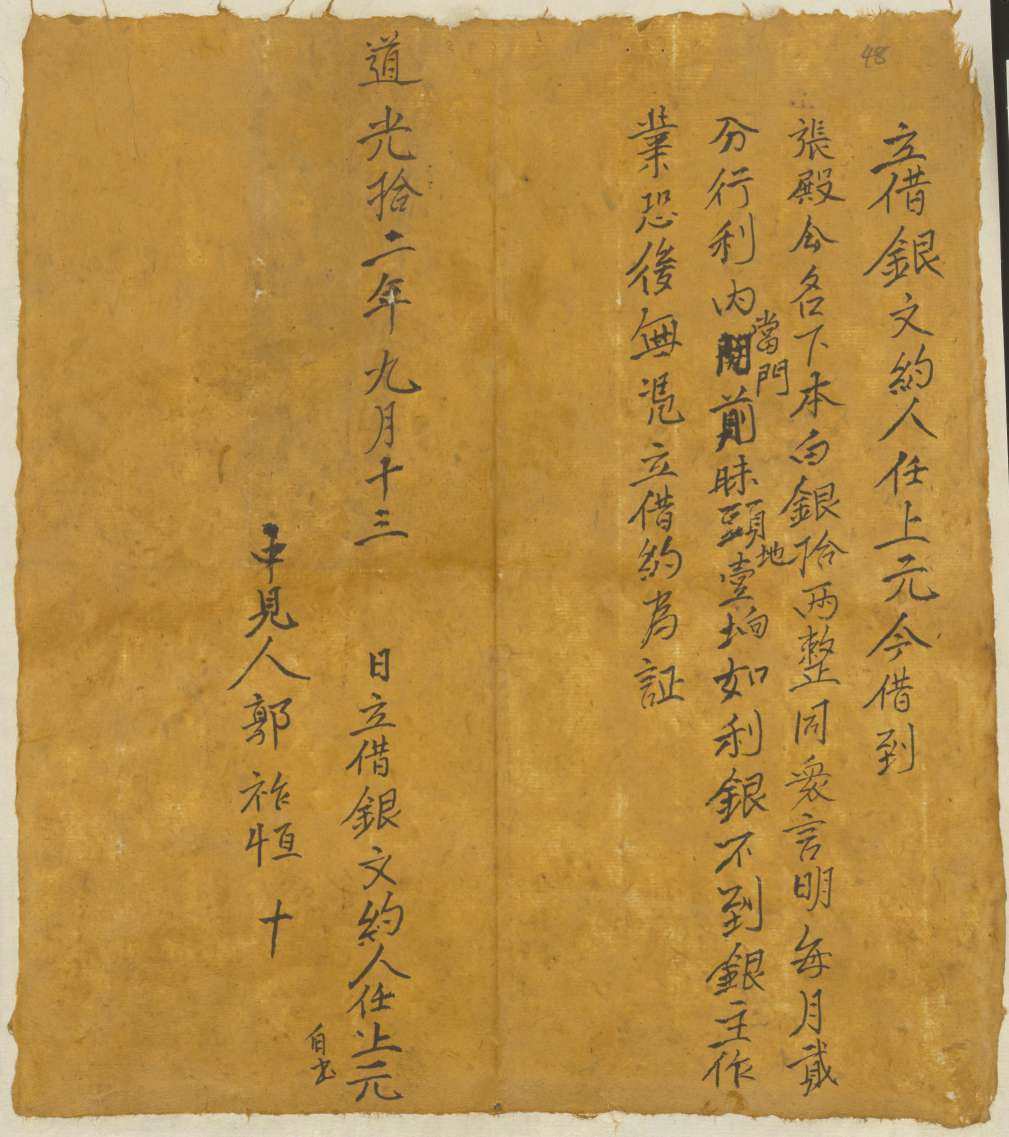 48
立借銀文約人任上元今借到
張殿会名下本白銀拾両整同衆言明每月貳
分行利内當門前頭地壹垧如利銀不到銀主作
業恐後無凴立借約為証
道光拾二年九月十三 日立借銀文約人任上元
自书
中見人郭 恒 十